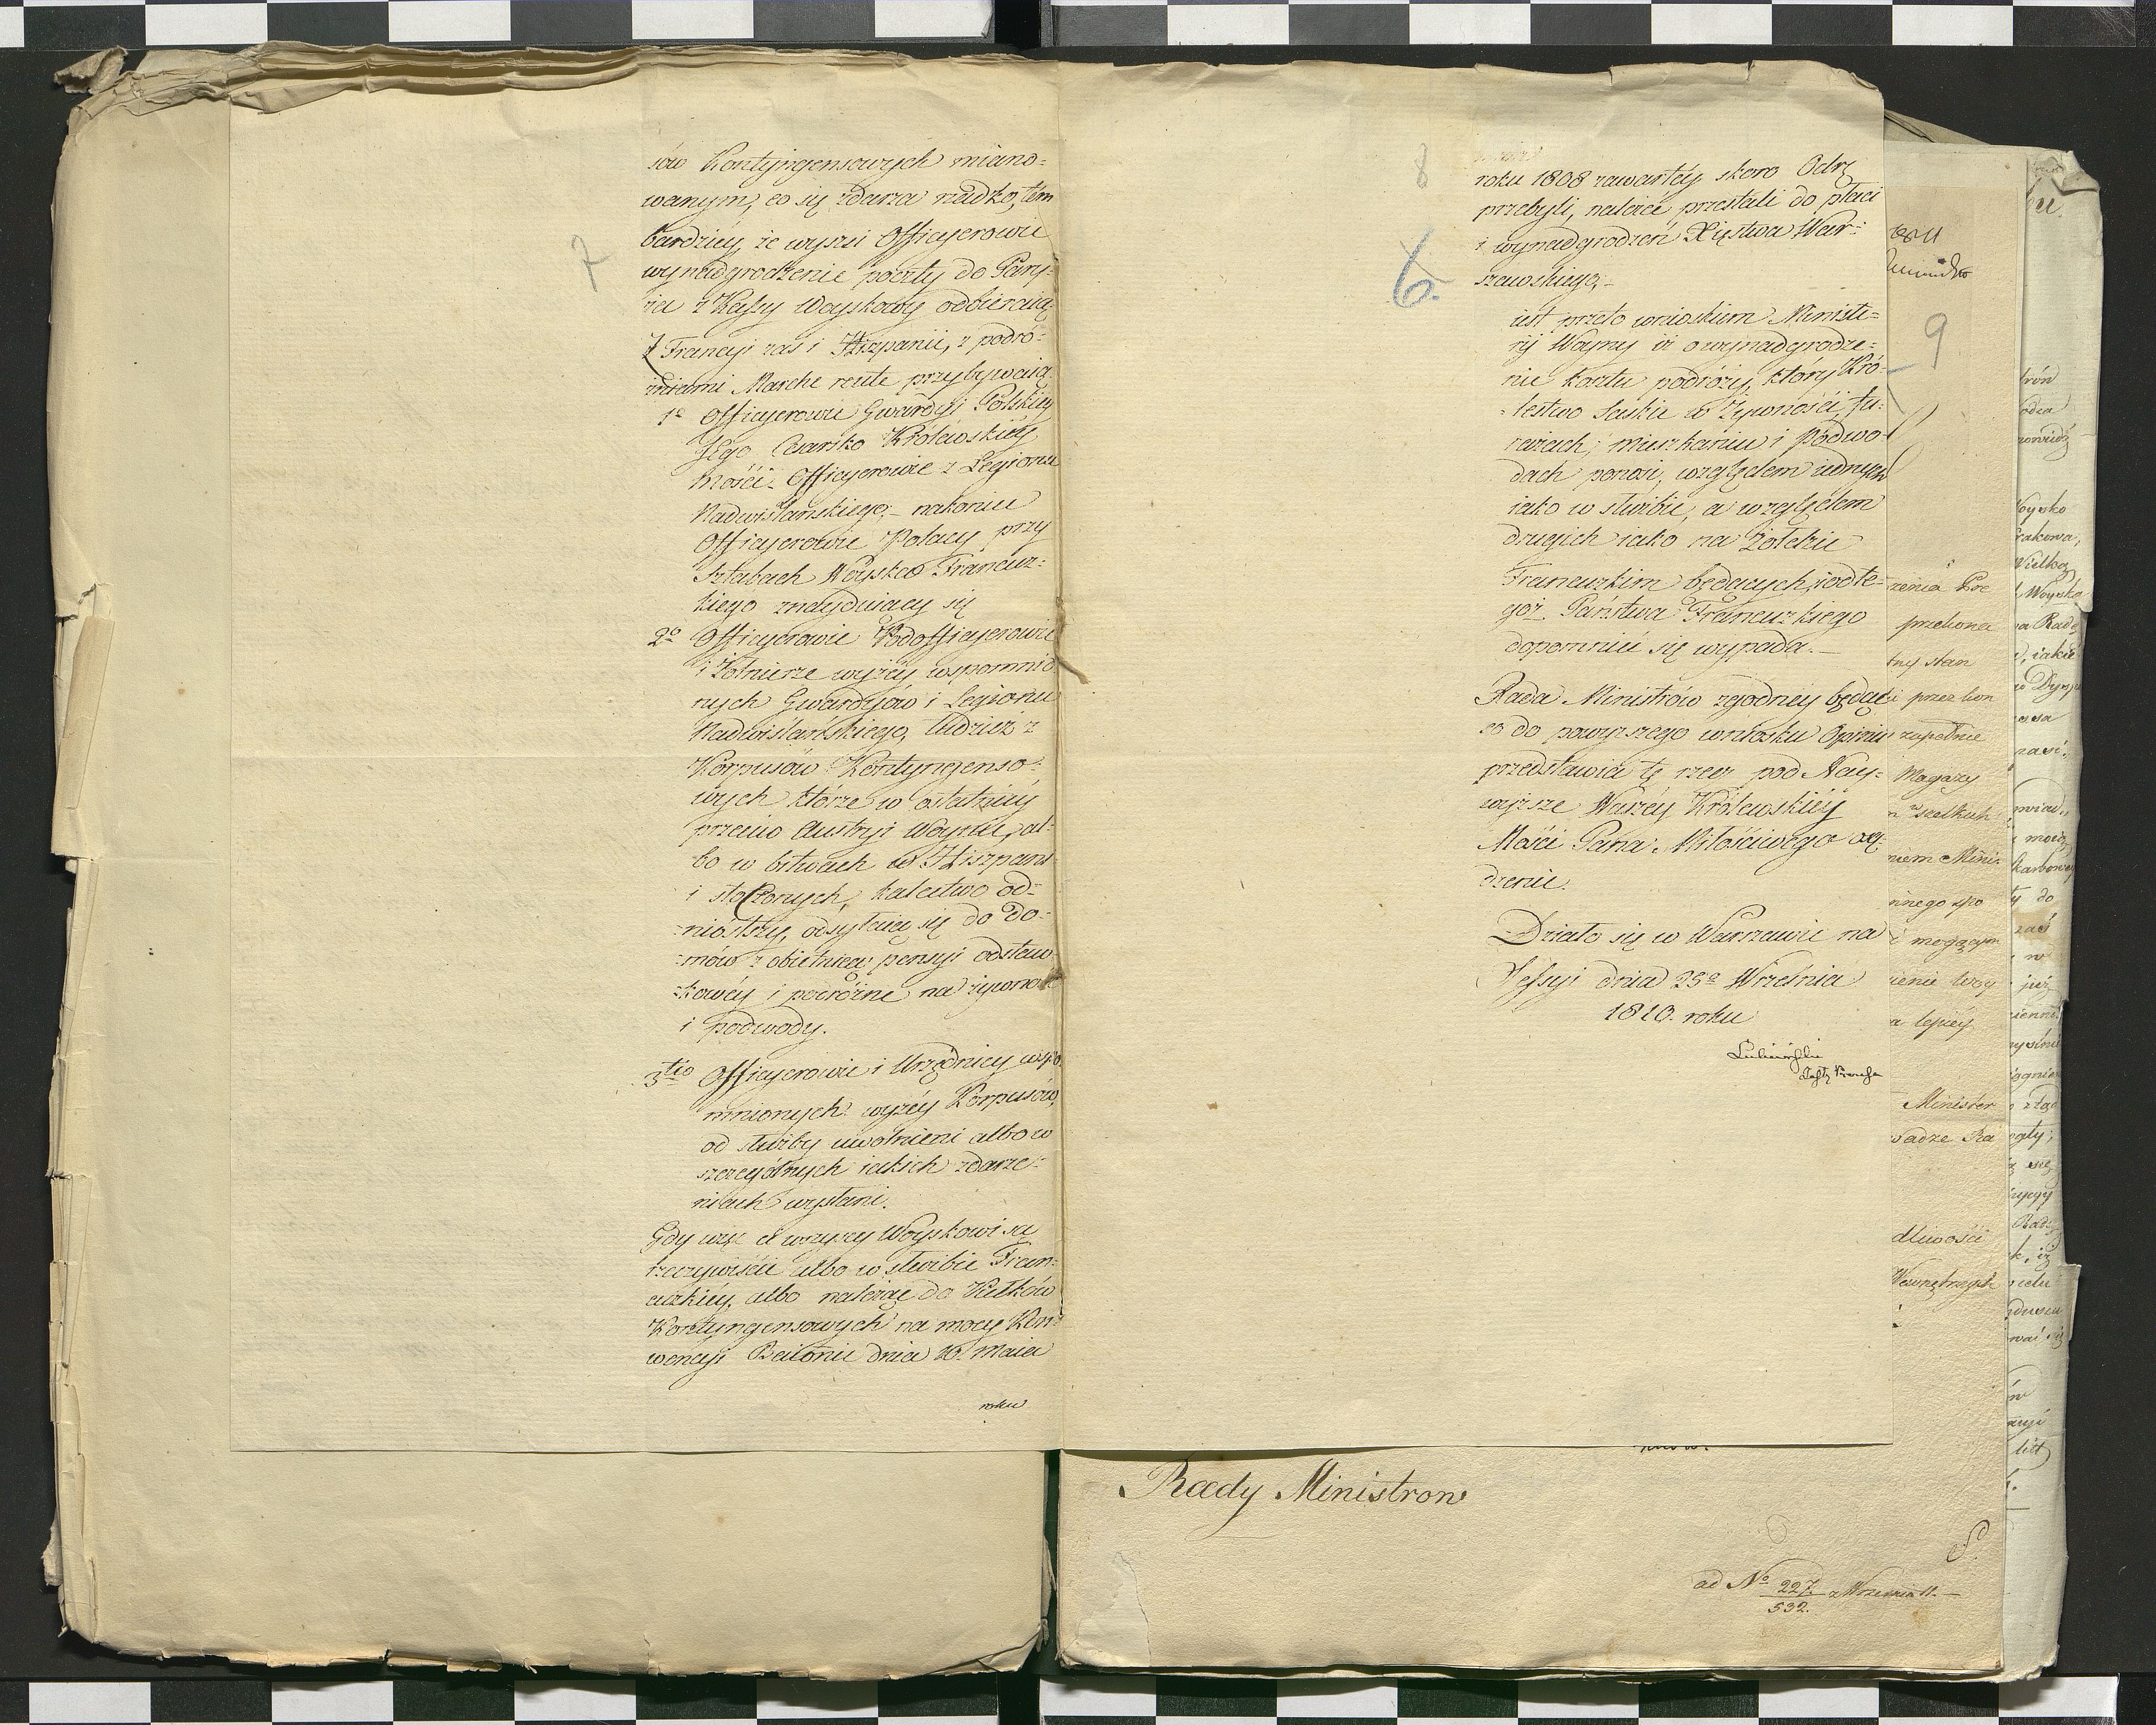 7
sów Kontyngensowych miano-
wanym, co się zdarza rzadko, tém
bardziéy, że wyżsi Officyerowie
wynadgrodzenie poczty do Pary-
ża z Kassy Woyskowéy odbieraią
Z Francyi zaś i Hiszpanii, z podró-
żniami Marche route przybywaią
1o Officyerowie Gwardyi Polskiéy
Jego Cesarsko Królewskiéy
Mości. Officyerowie z Legionu
Nadwislanskiego;- nakoniec
Officyerowie Polacy przy
Sztabach Woyska Francuz-
kiego znayduiący się
2o Officyerowie Podofficyerowie
i Żołnierze wyżéy wspomnio
nych Gwardyów i Legionu
Nadwiślańskiego, tudzież z
Korpusów Kontyngenso-
wych którzy w ostatniéy
przeciw Austryi Woynie, al-
bo w bitwach w Hiszpani
i stoczonych, kalectwo od-
niósłszy, odsyłaią się do do-
mów z obietnicą pensyi odstaw
kowéy i podróżne na żywność
i podwody.
3tio Officyerowie i Urzędnicy wspo
mnionych wyżéy Korpusów,
od służby uwolnieni albo w
szczególnych iakich zdarze-
niach wysłani.
Gdy więc ci wszyscy Woyskowi są
rzeczywiście albo w służbie Fran-
cuzkiéy, albo należąc do Pułków
Kontyngensowych na mocy Kon-
wencyi Baionie dnia 10. Maia
roku
8
6.
roku 1808 zawartéy skoro Odrę
przebyli, należeć przestali do płaci
i wynadgrodzeń Xięstwa War-
szawskiego,-
iest przeto wnioskiem Ministe-
ryi Woyny iż o wynadgrodze-
nie kosztu podróży, który Kró-
lestwo Saskie w Żywności, fu-
rażach, mieszkaniu i podwo-
dach ponosi, względem iednych
iako w służbie, a względem
drugich iako na Żołdzie
Francuzkim będących, od te-
goż Państwa Francuzkiego
dopomnieć się wypada.-
Rada Ministrów zgodnéy będąc
co do powyższego wniosku Opinii
przedstawia tę rzecz pod Nay-
wyższe Waszéy Królewskiéy
Mości Pana Miłościwego osą-
dzenie.
Działo się w Warszawie na
Sessyi dnia 25o Września
1810. roku
9
zenia
przekona
tny stan
i przez kon
zupełnie
Magazy
wszelkich
niem Mini-
nnego spo
i mogącym
ienie
a lepiéy
Minister
wadze Ra
dliwości
Wewnętrznych
Woysko
Krakowa,
Wielkog
Woyska
Radę
, iakie
Rady Ministrow
ad No 227. z Września 11.-
532.